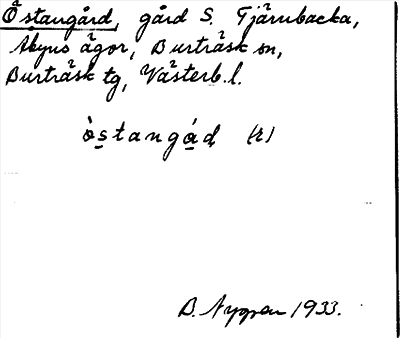 Östangård, gård S. Tjärnbacka,
Åbyns ägor, Burträsk sn,
Burträsk tg, Västerb. l.
òstangád (r)
B. Nygren 1933.